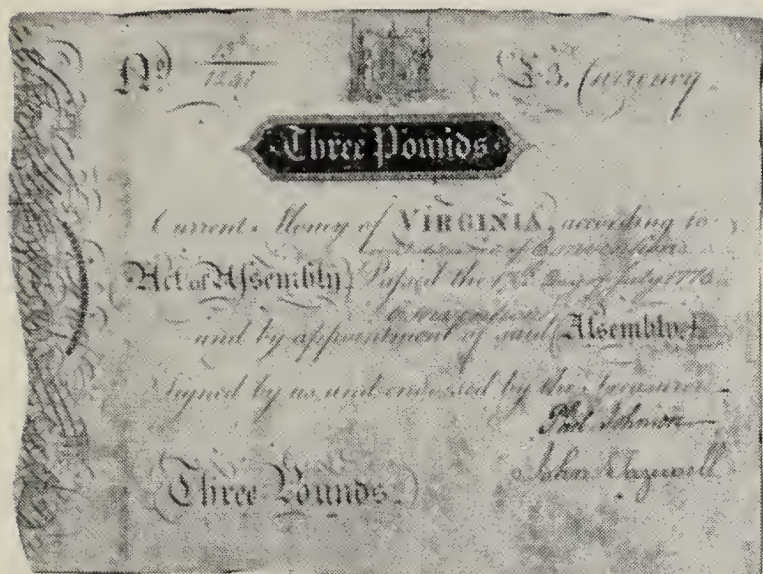 No) £3. Currency
1241
Three Pounds
Current Money of VIRGINIA, according to
Act of Assembly Passed the day of July 177
and by appointment of said Assembly.
Signed by us, and endorsed by the Treasurer
Johnson
Three Pounds. John